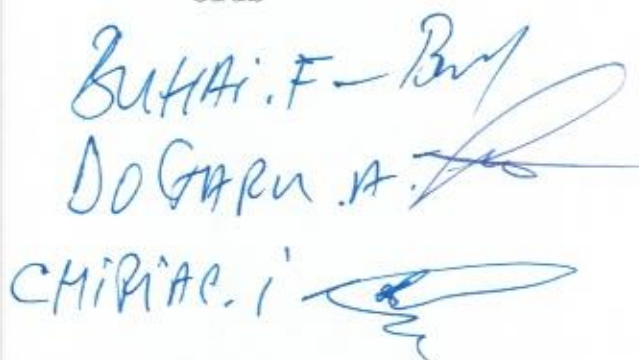 BUHAI.F -
DOGARU.A.
CHIRIAC.I